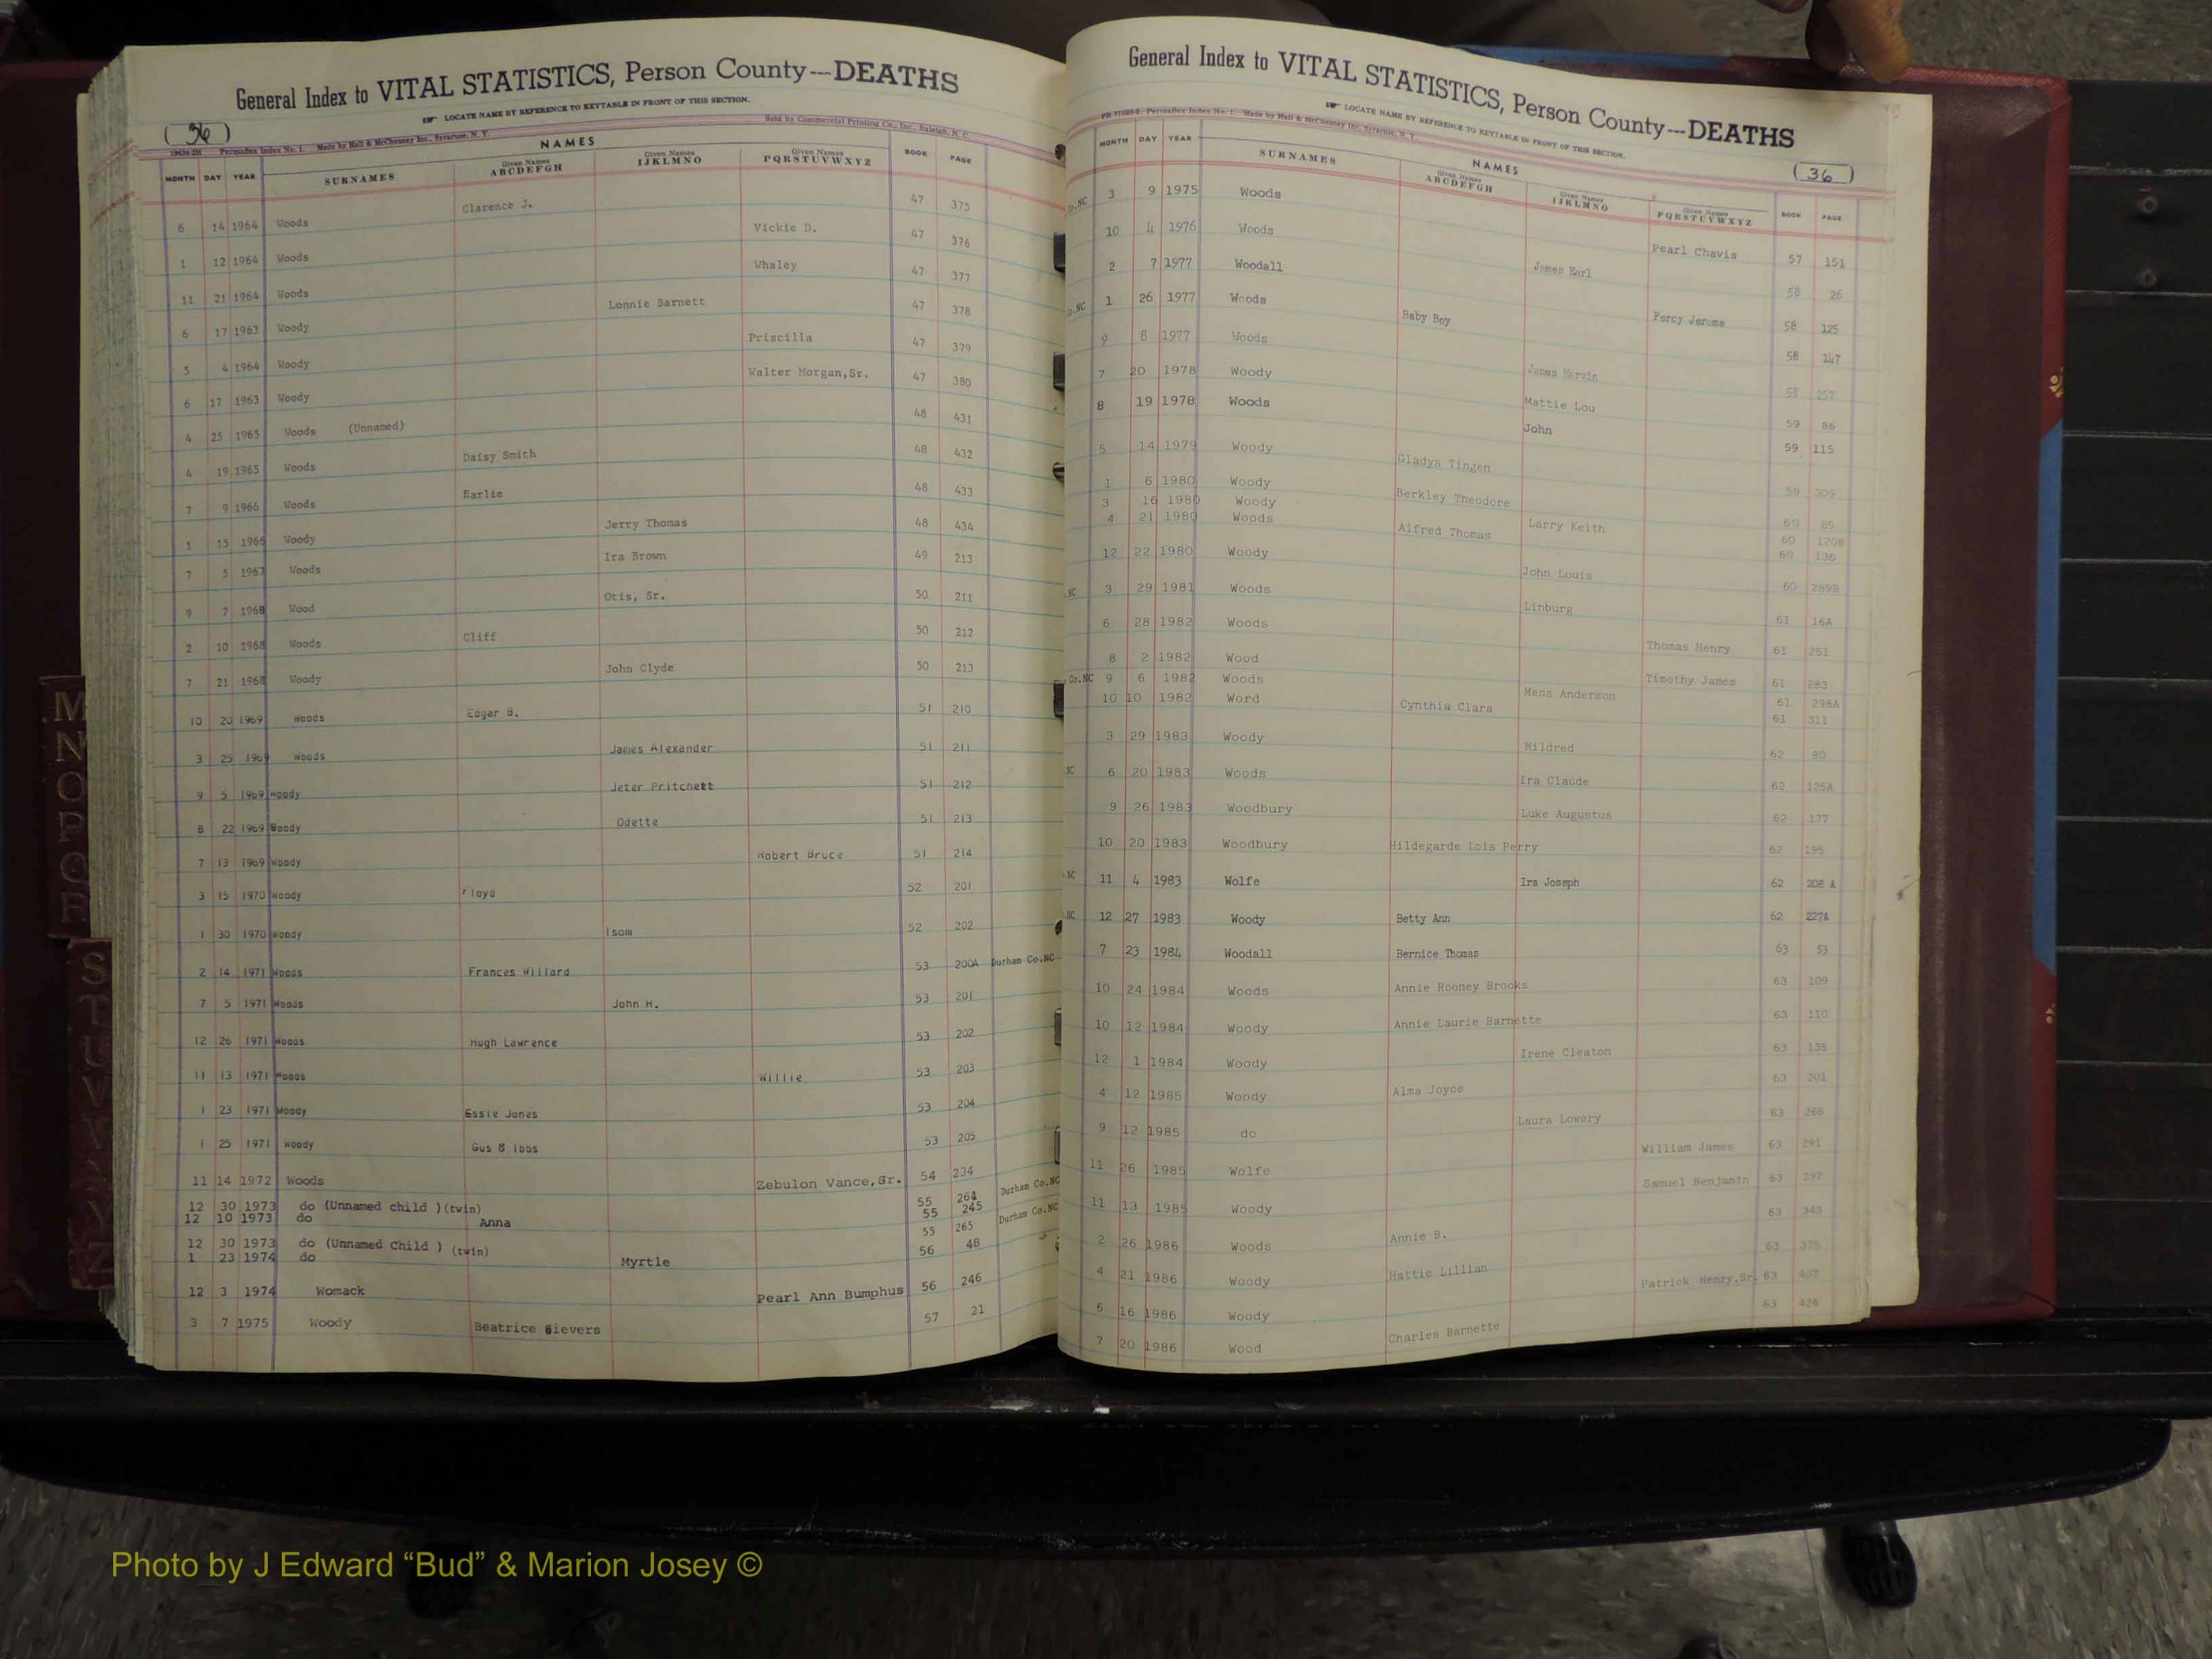 General Index to VITAL STATISTICS, Person County---DEATHS
LOCATE NAME BY REFERENCE TO KEYTABLE IN FRONT OF THIS SECTION.
( 36 )
Permaflex Index No. 1. Made by Hall & McChesney Inc., Syracuse, N. Y. Sold by Commercial Printing Co., Inc., Raleigh, N. C.
NAMES
MONTH DAY YEAR SURNAMES Given Names ABCDEFGH Given Names IJKLMNO Given Names PQRSTUVWXYZ BOOK PAGE
6 14 1964 Woods Clarence J. 47 375
1 12 1964 Woods Vickie D. 47 376
11 21 1964 Woods Whaley 47 377
6 17 1963 Woody Lonnie Barnett 47 378
5 4 1964 Woody Priscilla 47 379
6 17 1963 Woody Walter Morgan,Sr. 47 380
4 25 1965 Woods (Unnamed) 48 431
4 19 1965 Woods Daisy Smith 48 432
7 9 1966 Woods Earlie 48 433
1 15 1966 Woody Jerry Thomas 48 434
7 5 1967 Woods Ira Brown 49 213
9 7 1968 Wood Otis, Sr. 50 211
2 10 1968 Woods Cliff 50 212
7 21 1968 Woody John Clyde 50 213
10 20 1969 Woods Edgar B. 51 210
3 25 1969 Woods James Alexander 51 211
9 5 1969 Woody Jeter Pritchett 51 212
8 22 1969 Woody Odette 51 213
7 13 1969 Woody Robert Bruce 51 214
3 15 1970 Woody Floyd 52 201
1 30 1970 Woody Isom 52 202
2 14 1971 Woods Frances Willard 53 200A Durham Co.NC
7 5 1971 Woods John H. 53 201
12 26 1971 Woods Hugh Lawrence 53 202
11 13 1971 Woods Willie 53 203
1 23 1971 Woody Essie Jones 53 204
1 25 1971 Woody Gus Gibbs 53 205
11 14 1972 Woods Zebulon Vance,Sr. 54 234
12 30 1973 do (Unnamed child )(twin) 55 264 Durham Co.NC
12 10 1973 do Anna 55 245
12 30 1973 do (Unnamed Child ) (twin) 55 265 Durham Co.NC
1 23 1974 do Myrtle 56 48
12 3 1974 Womack Pearl Ann Bumphus 56 246
3 7 1975 Woody Beatrice Sievers 57 21
General Index to VITAL STATISTICS, Person County---DEATHS
LOCATE NAME BY REFERENCE TO KEYTABLE IN FRONT OF THIS SECTION.
Permaflex Index No. 1. Made by Hall & McChesney Inc., Syracuse, N. Y.
( 36 )
NAMES
MONTH DAY YEAR SURNAMES Given Names ABCDEFGH Given Names IJKLMNO Given Names PQRSTUVWXYZ BOOK PAGE
Co.NC 3 9 1975 Woods Pearl Chavis 57 151
10 4 1976 Woods James Earl 58 26
2 7 1977 Woodall Percy Jerome 58 125
Co.NC 1 26 1977 Woods Baby Boy 58 147
9 8 1977 Woods James Marvin 58 257
7 20 1978 Woody Mattie Lou 59 86
8 19 1978 Woods John 59 115
5 14 1979 Woody Gladys Tingen 59 309
1 6 1980 Woody Berkley Theodore 60 85
3 16 1980 Woody Larry Keith 60 120B
4 21 1980 Woods Alfred Thomas 60 136
12 22 1980 Woody John Louis 60 289B
NC 3 29 1981 Woods Linburg 61 16A
6 28 1982 Woods Thomas Henry 61 251
8 2 1982 Wood Timothy James 61 283
Co.NC 9 6 1982 Woods Mens Anderson 61 298A
10 10 1982 Word Cynthia Clara 61 311
3 29 1983 Woody Mildred 62 80
NC 6 20 1983 Woods Ira Claude 62 125A
9 26 1983 Woodbury Luke Augustus 62 177
10 20 1983 Woodbury Hildegarde Lois Perry 62 195
NC 11 4 1983 Wolfe Ira Joseph 62 208 A
NC 12 27 1983 Woody Betty Ann 62 227A
7 23 1984 Woodall Bernice Thomas 63 53
10 24 1984 Woods Annie Rooney Brooks 63 109
10 12 1984 Woody Annie Laurie Barnette 63 110
12 1 1984 Woody Irene Cleaton 63 135
4 12 1985 Woody Alma Joyce 63 201
9 12 1985 do Laura Lowery 63 266
11 26 1985 Wolfe William James 63 291
11 13 1985 Woody Samuel Benjamin 63 292
2 26 1986 Woods Annie B. 63 343
4 21 1986 Woody Hattie Lillian 63 375
6 16 1986 Woody Patrick Henry,Sr. 63 407
7 20 1986 Wood Charles Barnette 63 426
M
N
O
P
Q
R
S
T
U
V
Z
Photo by J Edward “Bud” & Marion Josey ©